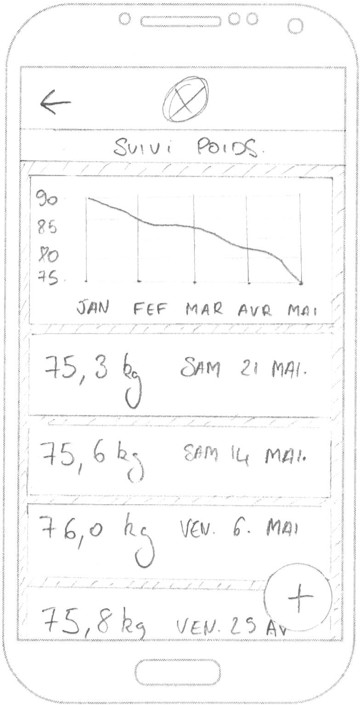 SUIVI POIDS.
90
85
80
75
JAN FEF MAR AVR MAI
75,3 kg SAM 21 MAI.
75,6 kg SAM 14 MAI.
76,0 kg VEN. 6. MAI
75,8 kg VEN. 29 AV
+